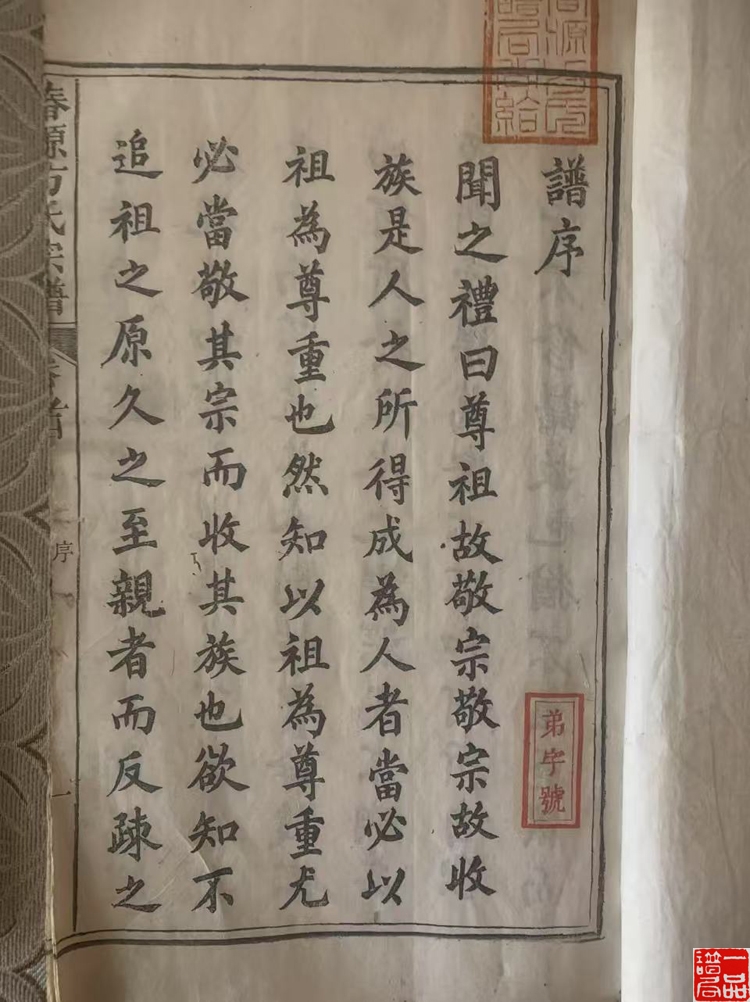 譜序
聞之禮曰尊祖故敬宗敬宗故收
族是人之所得成為人者當必以
祖為尊重也然知以祖為尊重尤
必當敬其宗而收其族也欲知不
追祖之原久之至親者而反疎之
弟字號
源方氏宗譜
序
一
一品譜局